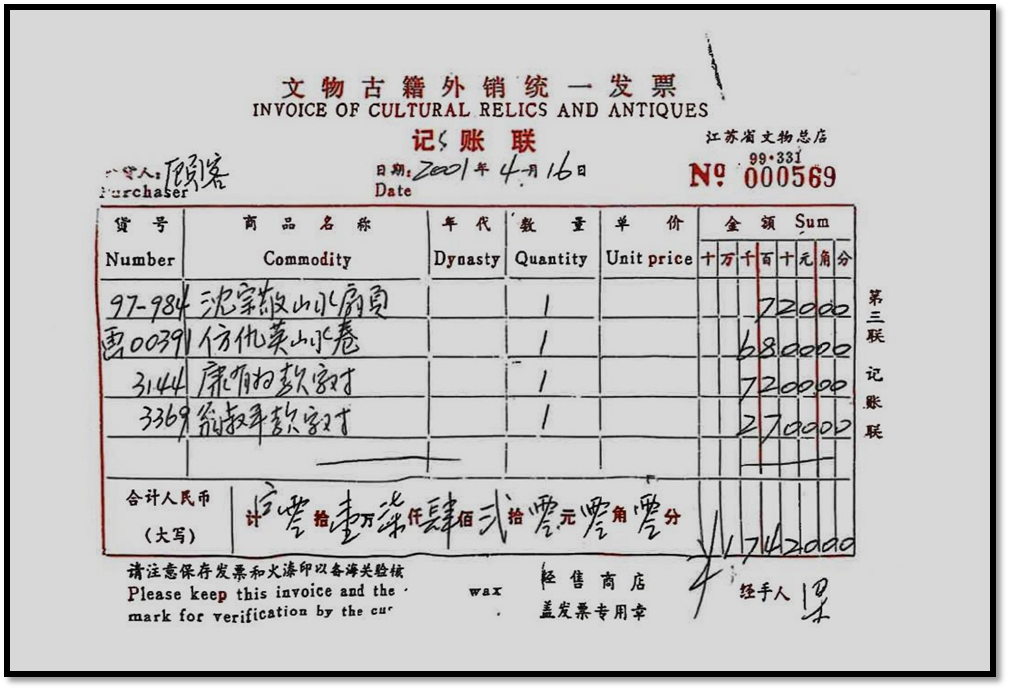 文物古籍外销统一发票
INVOICE OF CULTURAL RELICS AND ANTIQUES
记账联
江苏省文物总店
99·331
人: 顾客
日期: 2001年4月16日
№ 000569
Purchaser
Date
貨号 商品名称 年代 数量 单价 金额 Sum
Number Commodity Dynasty Quantity Unit price 十万千百十元角分
97-984 沈宗敬山水扇頁 1 72000
曹00391 仿仇英山水卷 1 680000
3144 康有为款字对 1 720000
3369 翁叔平款字对 1 270000
合计人民币
(大写)
计 零拾壹万柒仟肆佰贰拾零元零角零分
¥1742000
请注意保存发票和火漆印以备海关验核
Please keep this invoice and the wax
mark for verification by the cu
经售商店
盖发票专用章
经手人 梁
第三联 记账联